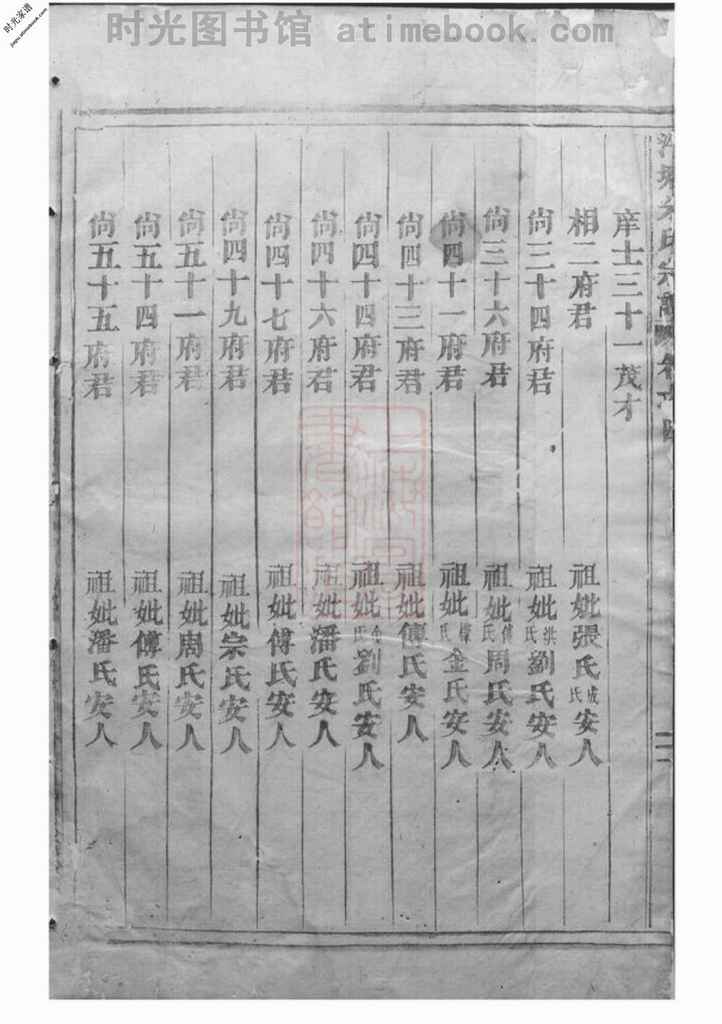 时光图书馆 atimebook.com
时光家谱
jiapu.atimebook.com
庠士三十一茂才
相二府君 祖妣張氏成氏安人
尙三十四府君 祖妣洪氏劉氏安人
尙三十六府君 祖妣傅氏周氏安人
尙四十一府君 祖妣樓氏金氏安人
尙四十三府君 祖妣傅氏安人
尙四十四府君 祖妣金氏劉氏安人
尙四十六府君 祖妣潘氏安人
尙四十七府君 祖妣傅氏安人
尙四十九府君 祖妣宗氏安人
尙五十一府君 祖妣周氏安人
尙五十四府君 祖妣傅氏安人
尙五十五府君 祖妣潘氏安人